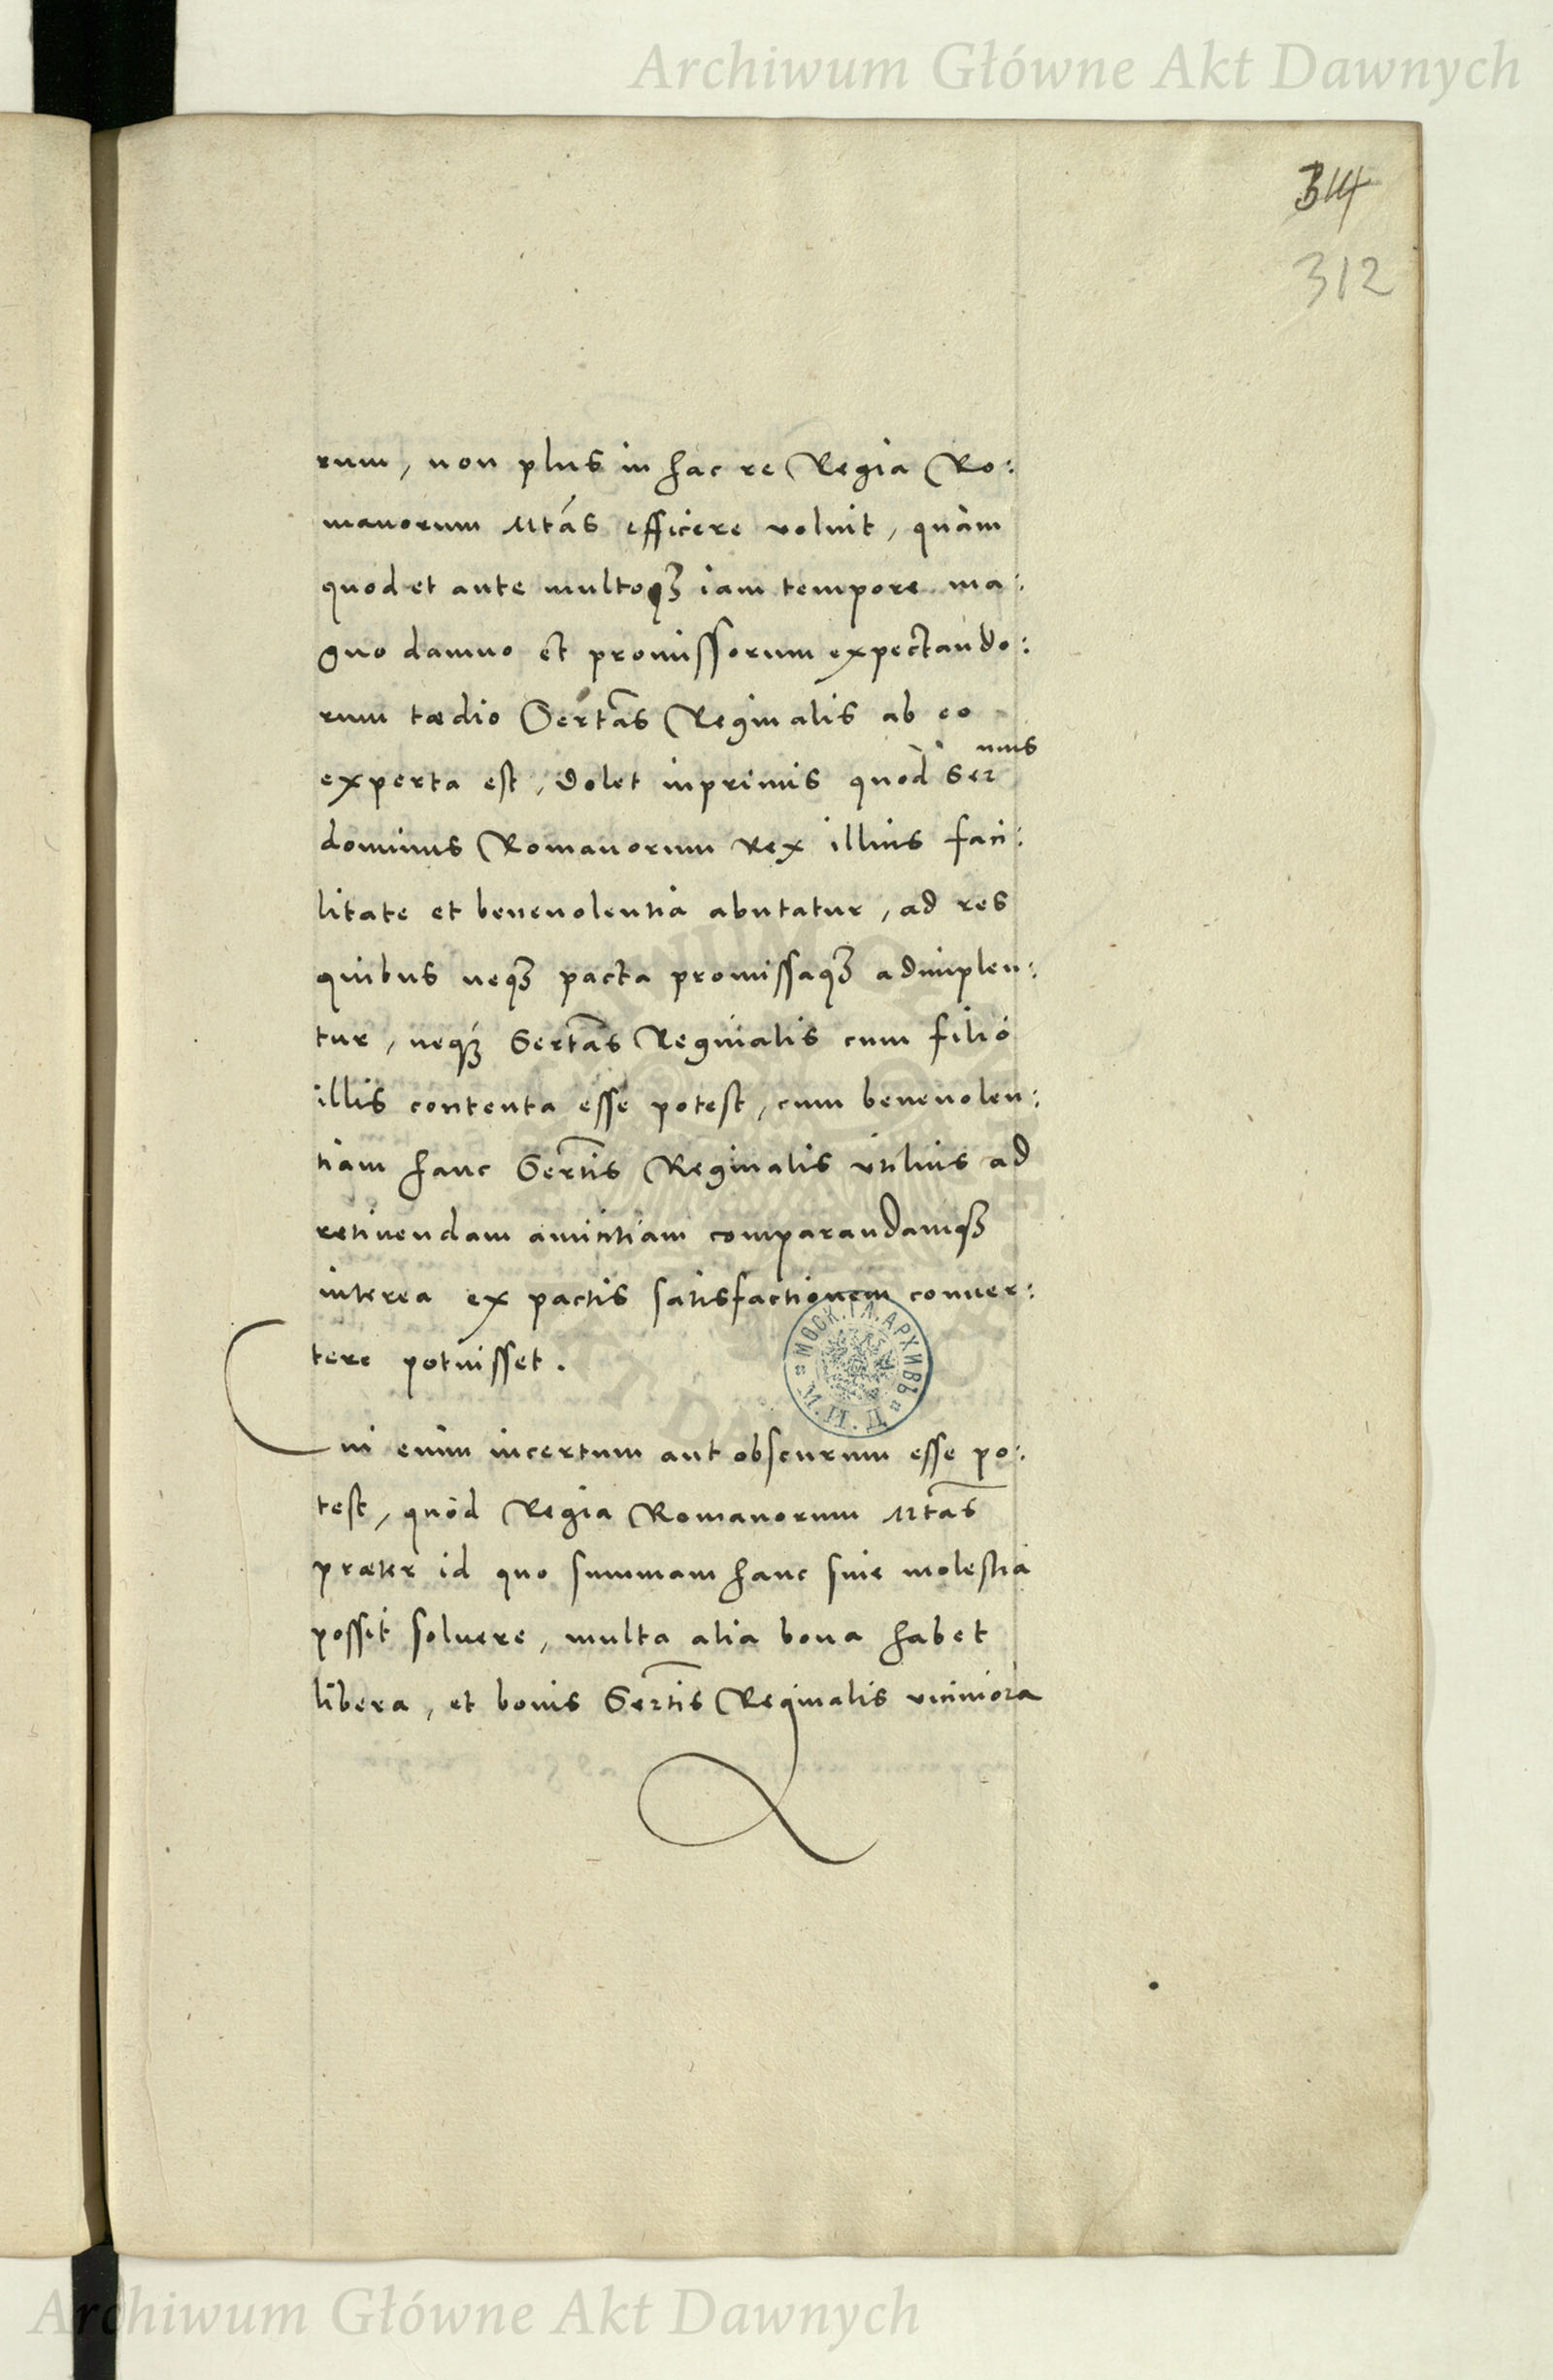 Archiwum Główne Akt Dawnych
314
312
rum, non plus in hac re Regia Ro:
manorum Mtás efficere voluit, quàm
quod et ante multoq3 iam tempore ma:
gno damno et promissorum expectando:
rum tædio Sertas Reginalis ab eo
experta est, dolet inprimis quòd Ser nmus
dominus Romanorum Rex illius faci:
litate et beneuolentia abutatur, ad res
quibus neq3 pacta promissaq3 adimplen:
tur, neq3 Sertas Reginalis cum filio
illis contenta esse potest, cum beneuolen:
tiam hanc Sertis Reginalis vtilius ad
retinendam amicitiam comparandamq3
interea ex pactis satisfactionem conuer:
tere potuisset.
Cui enim incertum aut obscurum esse po:
test, quòd Regia Romanorum Mtas
præter id quo summam hanc sine molestia
possit soluere, multa alia bona habet
libera, et bonis Sertis Reginalis viciniora
МОСК. ГЛ. АРХИВЪ
М. И. Д.
Archiwum Główne Akt Dawnych